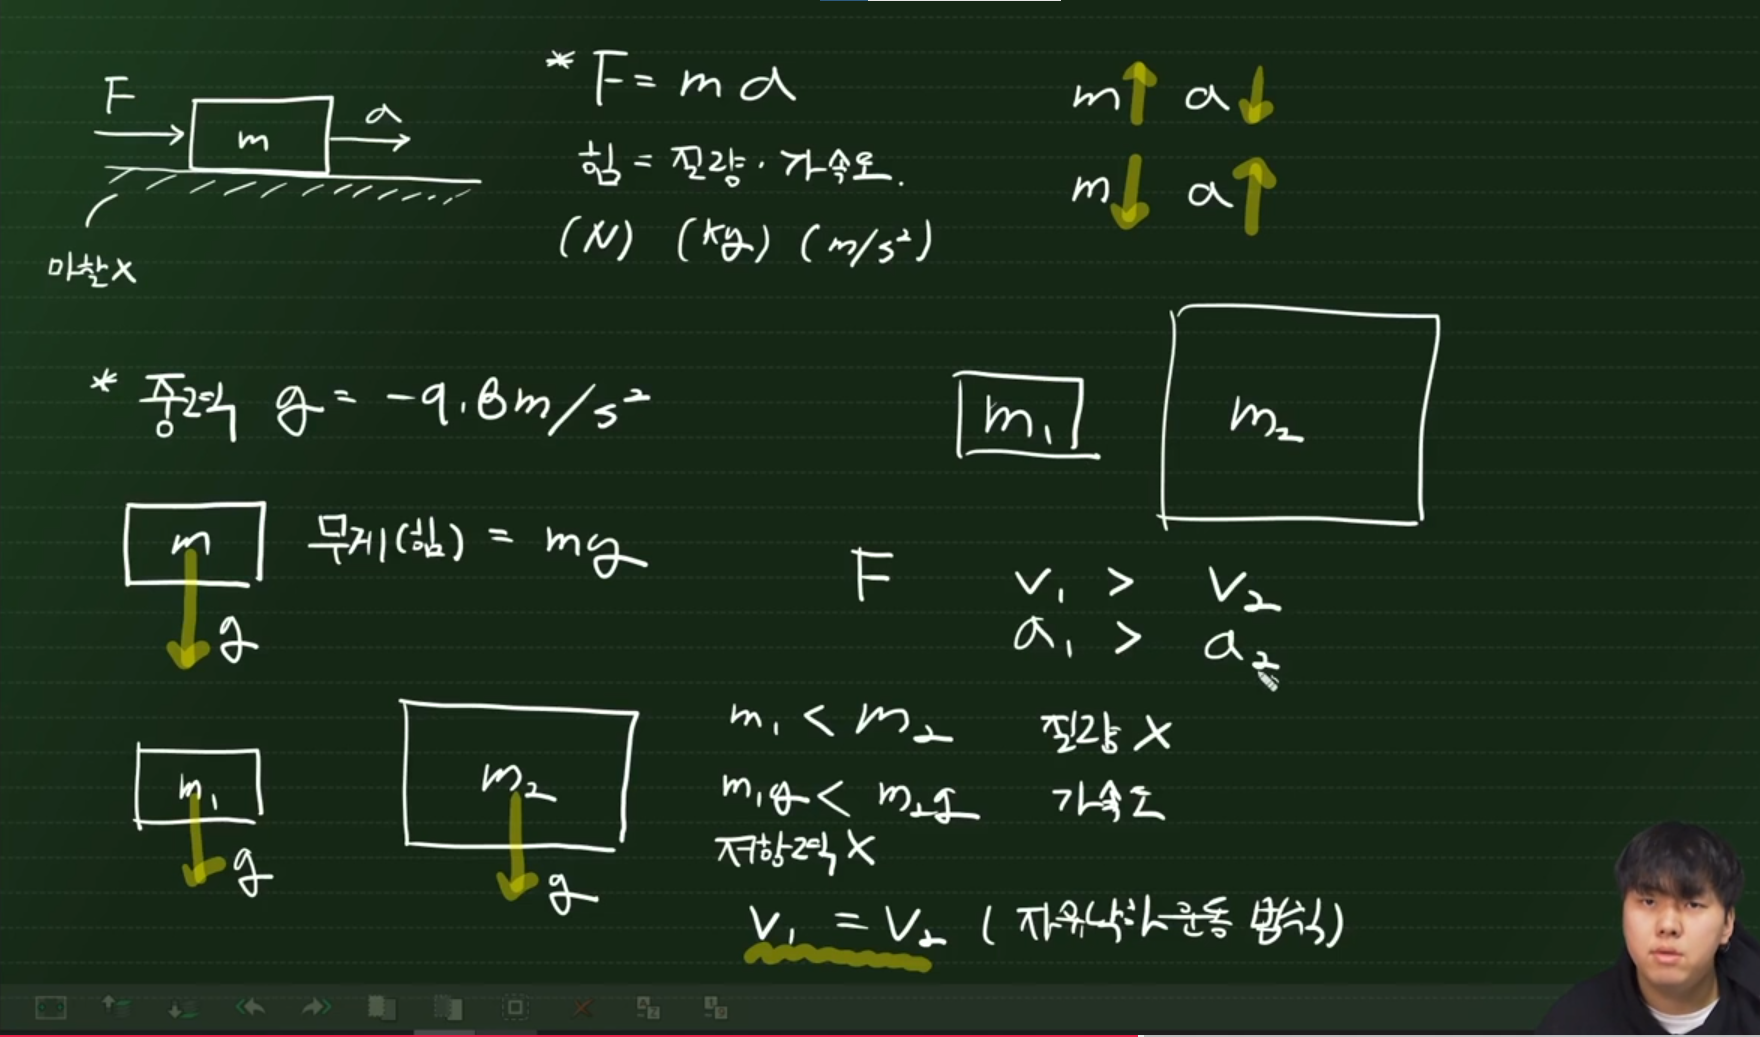 * F = ma
m↑ a↓
F
m
a
힘 = 질량 · 가속도.
m↓ a↑
(N) (kg) (m/s²)
마찰X
* 중력 g = -9.8m/s²
m₁
m₂
m
무게(힘) = mg
g
F v₁ > v₂
a₁ > a₂
m₁ < m₂ 질량 X
m₁
m₂
m₁g < m₂g 가속도
저항력 X
g
g
v₁ = v₂ (자유낙하 운동 법칙)